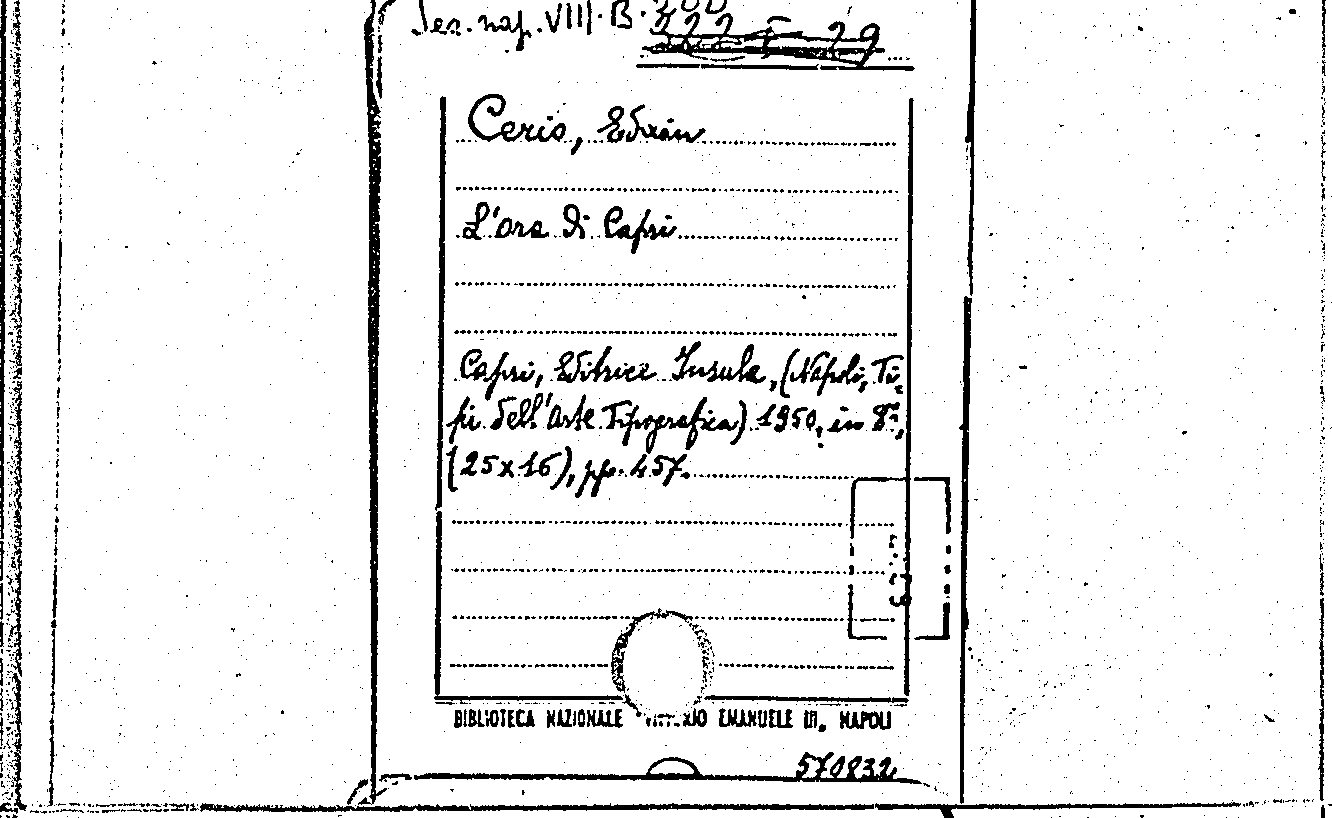 Sez. nap. VIII. B. 300
Cerio, Edwin
L'ora di Capri
Capri, Editrice Insula, (Napoli, Ti-
pi dell'Arte Tipografica) 1950, in 8º,
(25x16), pp. 457.
BIBLIOTECA NAZIONALE EMANUELE III, NAPOLI
570832